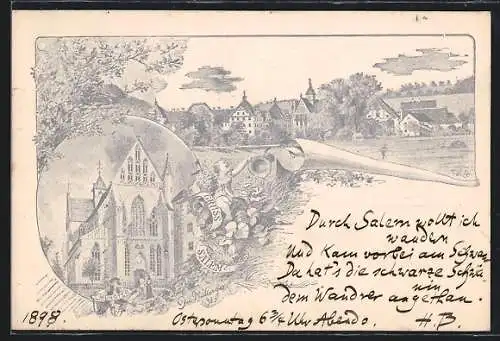 GRUSS
SALEM
Durch Salem wollt ich
wandern
Und kam vorbei am Schwan
Da hat's die schwarze Schwä-
nin
dem Wandrer angethan.
1898. Ostersonntag 6¾ Uhr Abends. H.B.